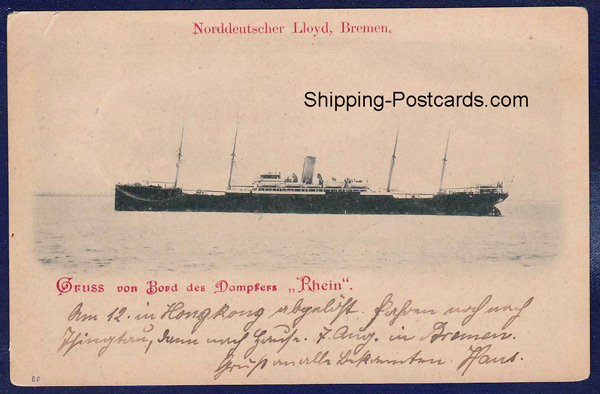 Norddeutscher Lloyd, Bremen,
Shipping-Postcards.com
Gruss von Bord des Dampfers „Rhein“.
Am 12. in Hongkong abgelöst. Fahren noch nach
Tsingtau, dann nach Hause. 7. Aug. in Bremen.
Gruß an alle Bekannten. Hans.